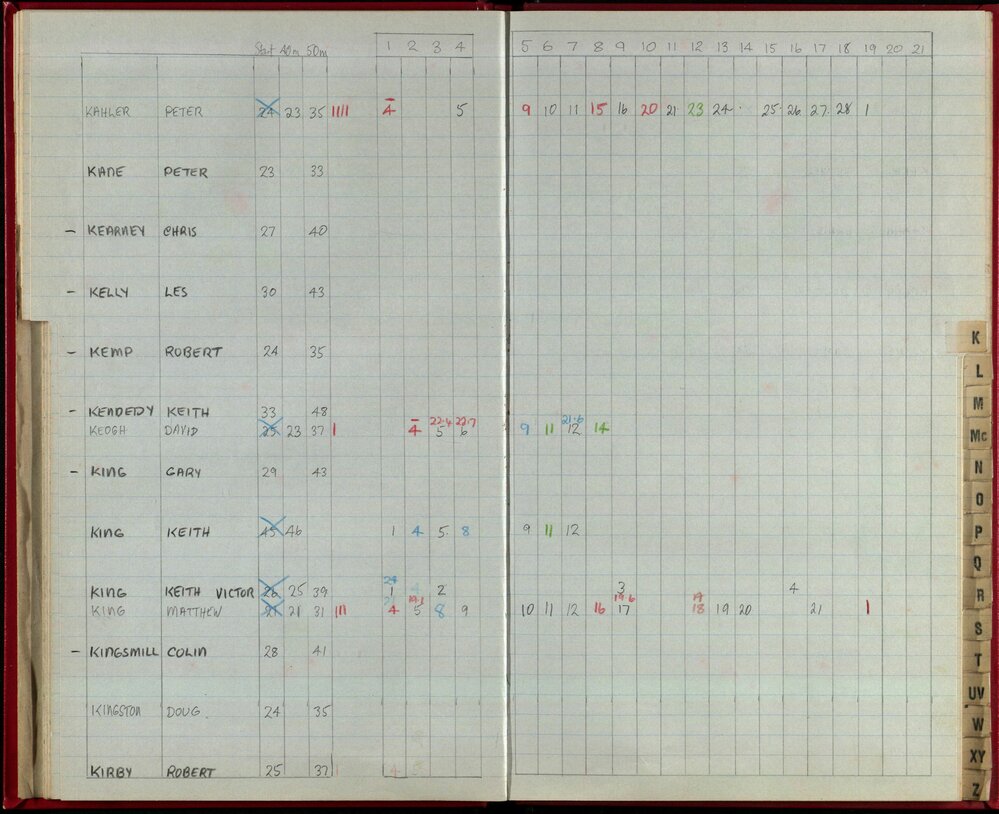 Start 40m 50m 1 2 3 4 5 6 7 8 9 10 11 12 13 14 15 16 17 18 19 20 21
KAHLER PETER 24 23 35 1111 4 5 9 10 11 15 16 20 21 23 24 25 26 27 28 1
KANE PETER 23 33
- KEARNEY CHRIS 27 40
- KELLY LES 30 43
- KEMP ROBERT 24 35
- KENDEDY KEITH 33 48
22.4 22.7 21.6
KEOGH DAVID 25 23 37 1 4 5 6 9 11 12 14
- KING GARY 29 43
KING KEITH 45 46 1 4 5 8 9 11 12
KING KEITH VICTOR 26 25 39 1 2 3 4
19.1 19.6 19
KING MATTHEW 21 21 31 111 4 5 8 9 10 11 12 16 17 18 19 20 21 1
- KINGSMILL COLIN 28 41
KINGSTON DOUG 24 35
KIRBY ROBERT 25 37 1 4 5
K
L
M
Mc
N
O
P
Q
R
S
T
UV
W
XY
Z